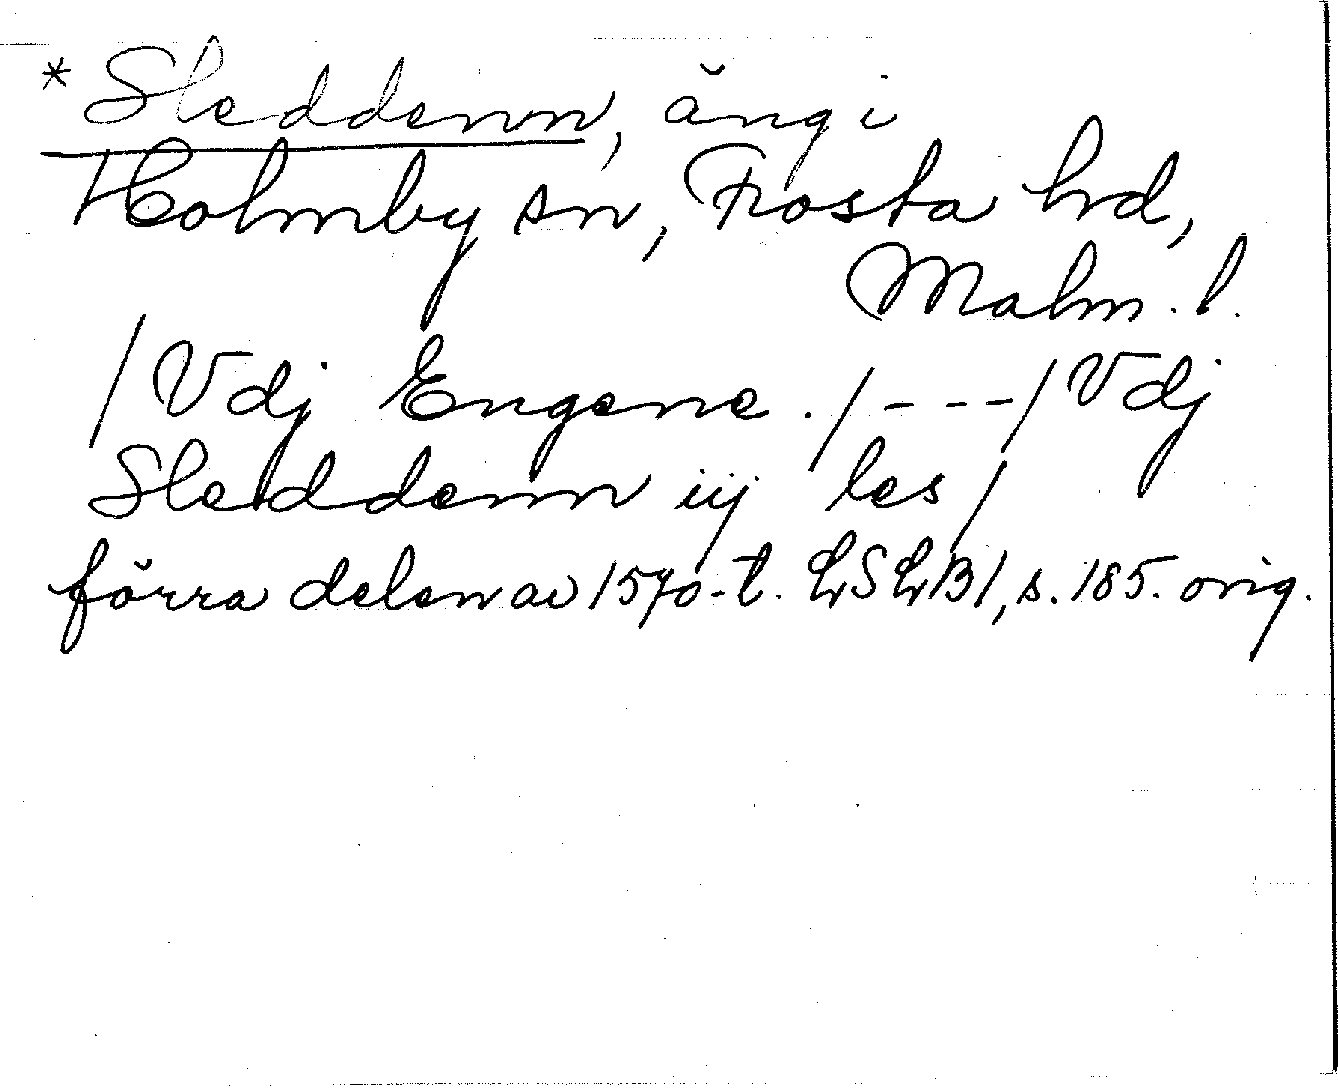 * Sleddenn, äng i
Holmby sn, Frosta hd,
Malm. l.
/ Vdj Engene. / - - - / Vdj
Sleddenn iij les /
förra delen av 1570-t. LSLB1, s. 185. orig.